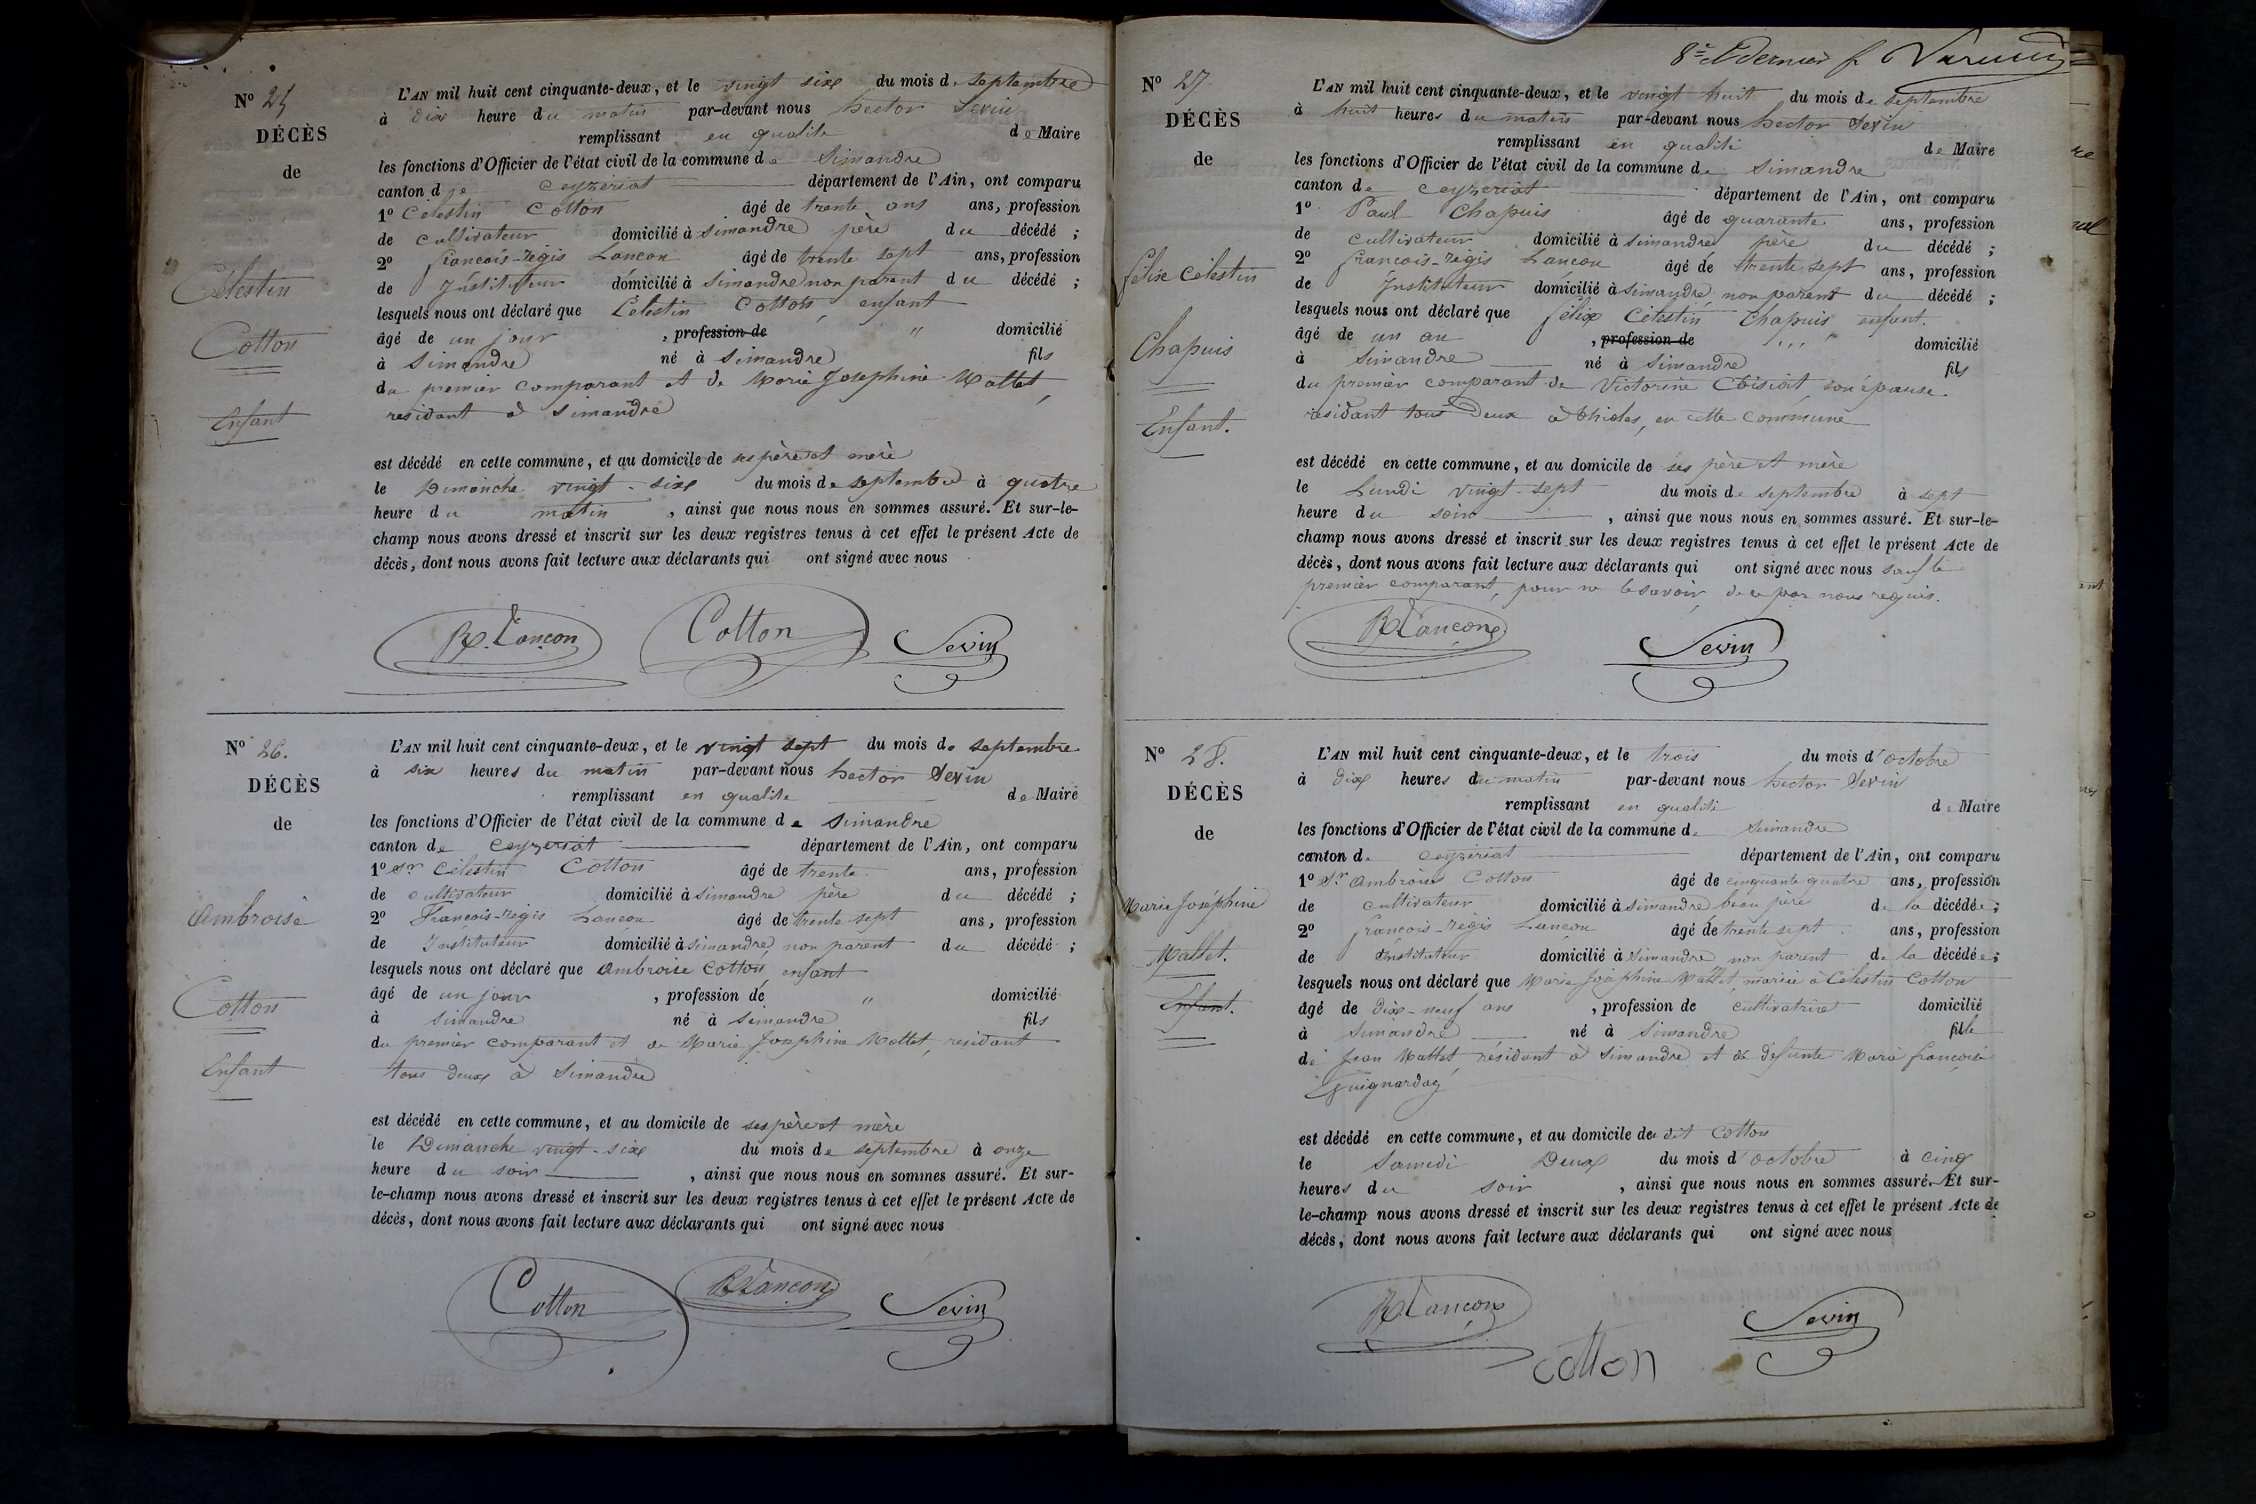 N° 25
DÉCÈS
de
Célestin
Cotton
Enfant
L'AN mil huit cent cinquante-deux, et le vingt six du mois de septembre
à dix heure du matin par-devant nous hector Sevin
remplissant en qualité de Maire
les fonctions d'Officier de l'état civil de la commune de Simandre
canton de ceyzeriat département de l'Ain, ont comparu
1° Célestin Cotton âgé de trente ans ans, profession
de cultivateur domicilié à Simandre père du décédé ;
2° françois-régis Lançon âgé de trente sept ans, profession
de Instituteur domicilié à Simandre non parent du décédé ;
lesquels nous ont déclaré que Célestin Cotton, enfant
âgé de un jour , profession de " domicilié
à Simandre né à Simandre fils
du premier comparant et de Marie Josephine Mallet,
residant à Simandre
est décédé en cette commune, et au domicile de ses père et mère
le Dimanche vingt-six du mois de septembre à quatre
heure du matin , ainsi que nous nous en sommes assuré. Et sur-le-
champ nous avons dressé et inscrit sur les deux registres tenus à cet effet le présent Acte de
décès, dont nous avons fait lecture aux déclarants qui ont signé avec nous
R. Lançon Cotton Sevin
N° 26.
DÉCÈS
de
Ambroise
Cotton
Enfant
L'AN mil huit cent cinquante-deux, et le vingt sept du mois de septembre
à six heures du matin par-devant nous hector Sevin
remplissant en qualité de Maire
les fonctions d'Officier de l'état civil de la commune de Simandre
canton de ceyzeriat département de l'Ain, ont comparu
1° Sr Célestin Cotton âgé de trente ans, profession
de cultivateur domicilié à Simandre père du décédé ;
2° François-régis Lançon âgé de trente sept ans, profession
de Instituteur domicilié à Simandre non parent du décédé ;
lesquels nous ont déclaré que Ambroise Cotton, enfant
âgé de un jour , profession de " domicilié
à Simandre né à Simandre fils
du premier comparant et de Marie Josephine Mallet, residant
tous deux à Simandre
est décédé en cette commune, et au domicile de ses père et mère
le Dimanche vingt-six du mois de septembre à onze
heure du soir , ainsi que nous nous en sommes assuré. Et sur-
le-champ nous avons dressé et inscrit sur les deux registres tenus à cet effet le présent Acte de
décès, dont nous avons fait lecture aux déclarants qui ont signé avec nous
Cotton R Lançon Sevin
8e et dernier f.
N° 27
DÉCÈS
de
félix Célestin
Chapuis
Enfant.
L'AN mil huit cent cinquante-deux, et le vingt huit du mois de septembre
à huit heures du matin par-devant nous hector Sevin
remplissant en qualité de Maire
les fonctions d'Officier de l'état civil de la commune de Simandre
canton de ceyzeriat département de l'Ain, ont comparu
1° Paul Chapuis âgé de quarante ans, profession
de cultivateur domicilié à Simandre père du décédé ;
2° françois-régis Lançon âgé de trente sept ans, profession
de Instituteur domicilié à Simandre, non parent du décédé ;
lesquels nous ont déclaré que félix Célestin Chapuis enfant.
âgé de un an , profession de " domicilié
à Simandre né à Simandre fils
du premier comparant de Victorine son épouse
residant tous deux à en cette commune
est décédé en cette commune, et au domicile de ses père et mère
le Lundi vingt-sept du mois de septembre à sept
heure du soir , ainsi que nous nous en sommes assuré. Et sur-le-
champ nous avons dressé et inscrit sur les deux registres tenus à cet effet le présent Acte de
décès, dont nous avons fait lecture aux déclarants qui ont signé avec nous sauf le
premier comparant, pour ne le savoir, de ce par nous requis.
R Lançon Sevin
N° 28.
DÉCÈS
de
Marie Joséphine
Mallet.
Enfant.
L'AN mil huit cent cinquante-deux, et le trois du mois d'octobre
à dix heures du matin par-devant nous hector Sevin
remplissant en qualité de Maire
les fonctions d'Officier de l'état civil de la commune de Simandre
canton de ceyzériat département de l'Ain, ont comparu
1° Sr Ambroise Cotton âgé de cinquante quatre ans, profession
de cultivateur domicilié à Simandre beau père de la décédée ;
2° françois-régis Lançon âgé de trente sept ans, profession
de Instituteur domicilié à Simandre non parent de la décédée ;
lesquels nous ont déclaré que Marie Joséphine Mallet, mariée à Célestin Cotton
âgé de dix-neuf ans , profession de cultivatrice domicilié
à Simandre né à Simandre fille
de Jean Mallet, résidant à Simandre et de défunte Marie françoise
est décédé en cette commune, et au domicile de dit Cotton
le Samedi Deux du mois d'octobre à cinq
heures du soir , ainsi que nous nous en sommes assuré. Et sur-
le-champ nous avons dressé et inscrit sur les deux registres tenus à cet effet le présent Acte de
décès, dont nous avons fait lecture aux déclarants qui ont signé avec nous
R Lançon Cotton Sevin